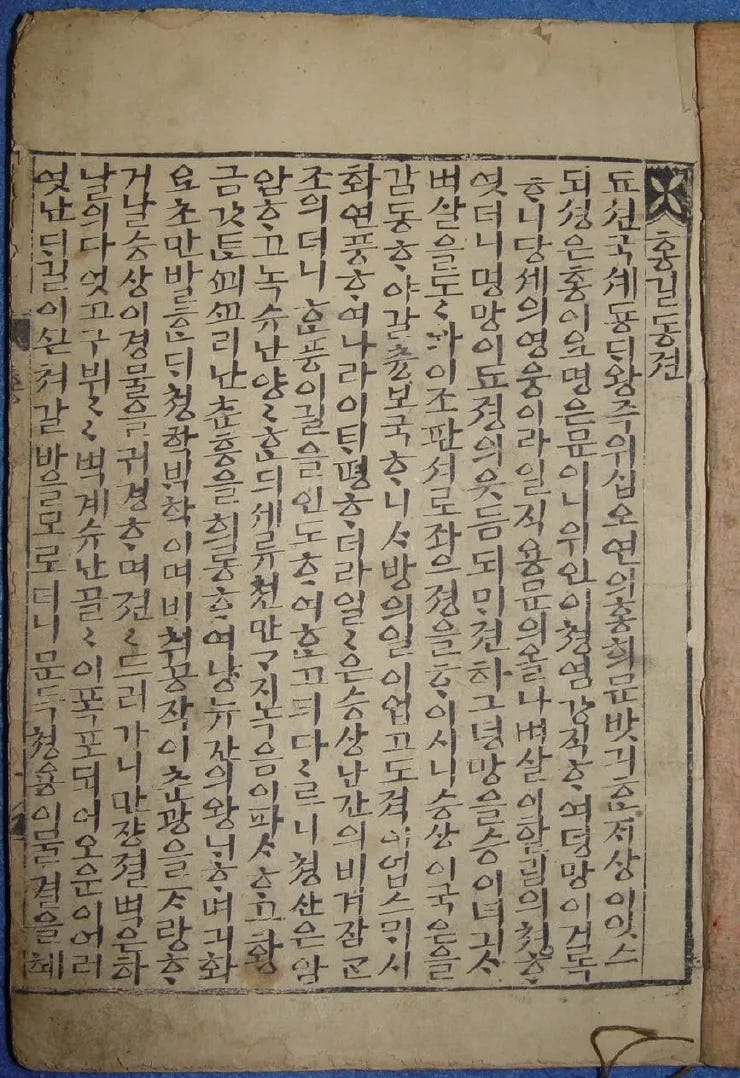 홍길동젼
됴션국셰둉ᄃᆡ왕즉위십오연의홍희문밧긔ᄒᆞᆫᄌᆡ상이잇스
되셩은홍이요명은문이니위인이쳥염강직ᄒᆞ여덕망이거록
ᄒᆞ니당셰의영웅이라일직용문의올나벼살이할림의쳐ᄒᆞ
엿더니명망이됴졍의읏듬되ᄆᆡ젼하그덕망을승이녀긔ᄉᆞ
벼살을도〻와이조판셔로좌으졍을ᄒᆞ이시니승상이국은을
감동ᄒᆞ야갈츙보국ᄒᆞ니ᄉᆞ방의일이업고도젹이업스ᄆᆡ시
화연풍ᄒᆞ여나라이ᄐᆡ평ᄒᆞ더라일〻은승상난간의비겨잠ᄀᆞᆫ
조의더니ᄒᆞᆫ풍이길을인도ᄒᆞ여ᄒᆞᆫ고ᄃᆡ다〻르니쳥산은암
암ᄒᆞ고녹슈난양〻ᄒᆞᆫᄃᆡ셰류쳔만ᄀᆞ지녹음이파ᄉᆞᄒᆞ고황
금갓튼ᄭᅬᄭᅩ리난츈흥을희롱ᄒᆞ여냥뉴간의왕ᄂᆡᄒᆞ며긔화
요초만발ᄒᆞᆫᄃᆡ쳥학ᄇᆡᆨ학이며비취공작이츈광을ᄌᆞ랑ᄒᆞ
거날승상이경물을귀경ᄒᆞ며졈〻드러가니만장졀벽은하
날의다엇고구뷔〻벽계슈난골〻이폭포되어오운이어러
엿난ᄃᆡ길이ᄭᅳᆫ쳐갈바을모로더니문득쳥용이물결을헤